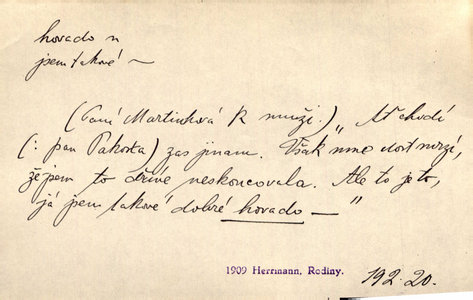 hovado n
jsem takové –
(Paní Martinková k muži.) „Ať chodí
(: pan Pakosta) zas jinam. Však mne dost mrzí,
že jsem to dříve neskoncovala. Ale to je to,
já jsem takové dobré hovado –"
1909 Herrmann, Rodiny.
192.20.